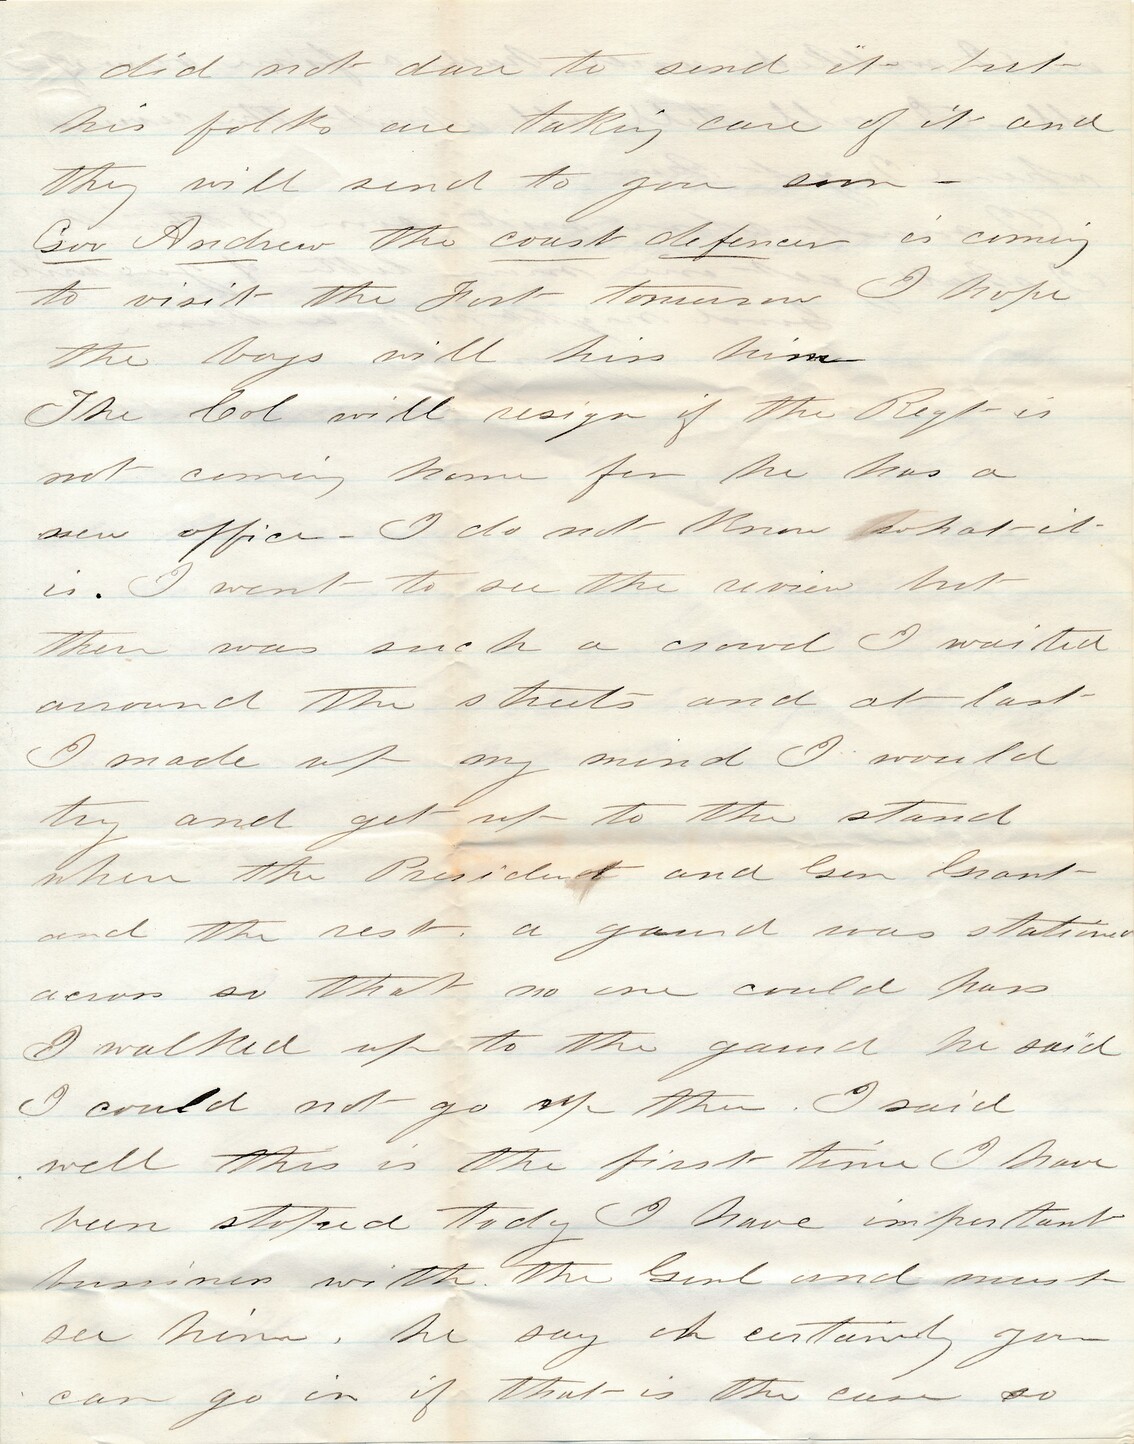 did not dare to send it but
his folks are taking care of it and
they will send to you soon -
Gov Andrew the coast defencer is coming
to visit the Fort tomorrow I hope
the boys will hiss him
The Col will resign if the Regt is
not coming home for he has a
new office - I do not know what it
is. I went to see the review but
there was such a crowd I waited
arround the streets and at last
I made up my mind I would
try and get up to the stand
where the President and Gen Grant
and the rest. a gaurd was stationed
across so that no one could pass
I walked up to the gaurd he said
I could not go up there. I said
well this is the first time I have
been stoped today I have important
bussiness with the Genl and must
see him. he say oh certainly you
can go in if that is the case so